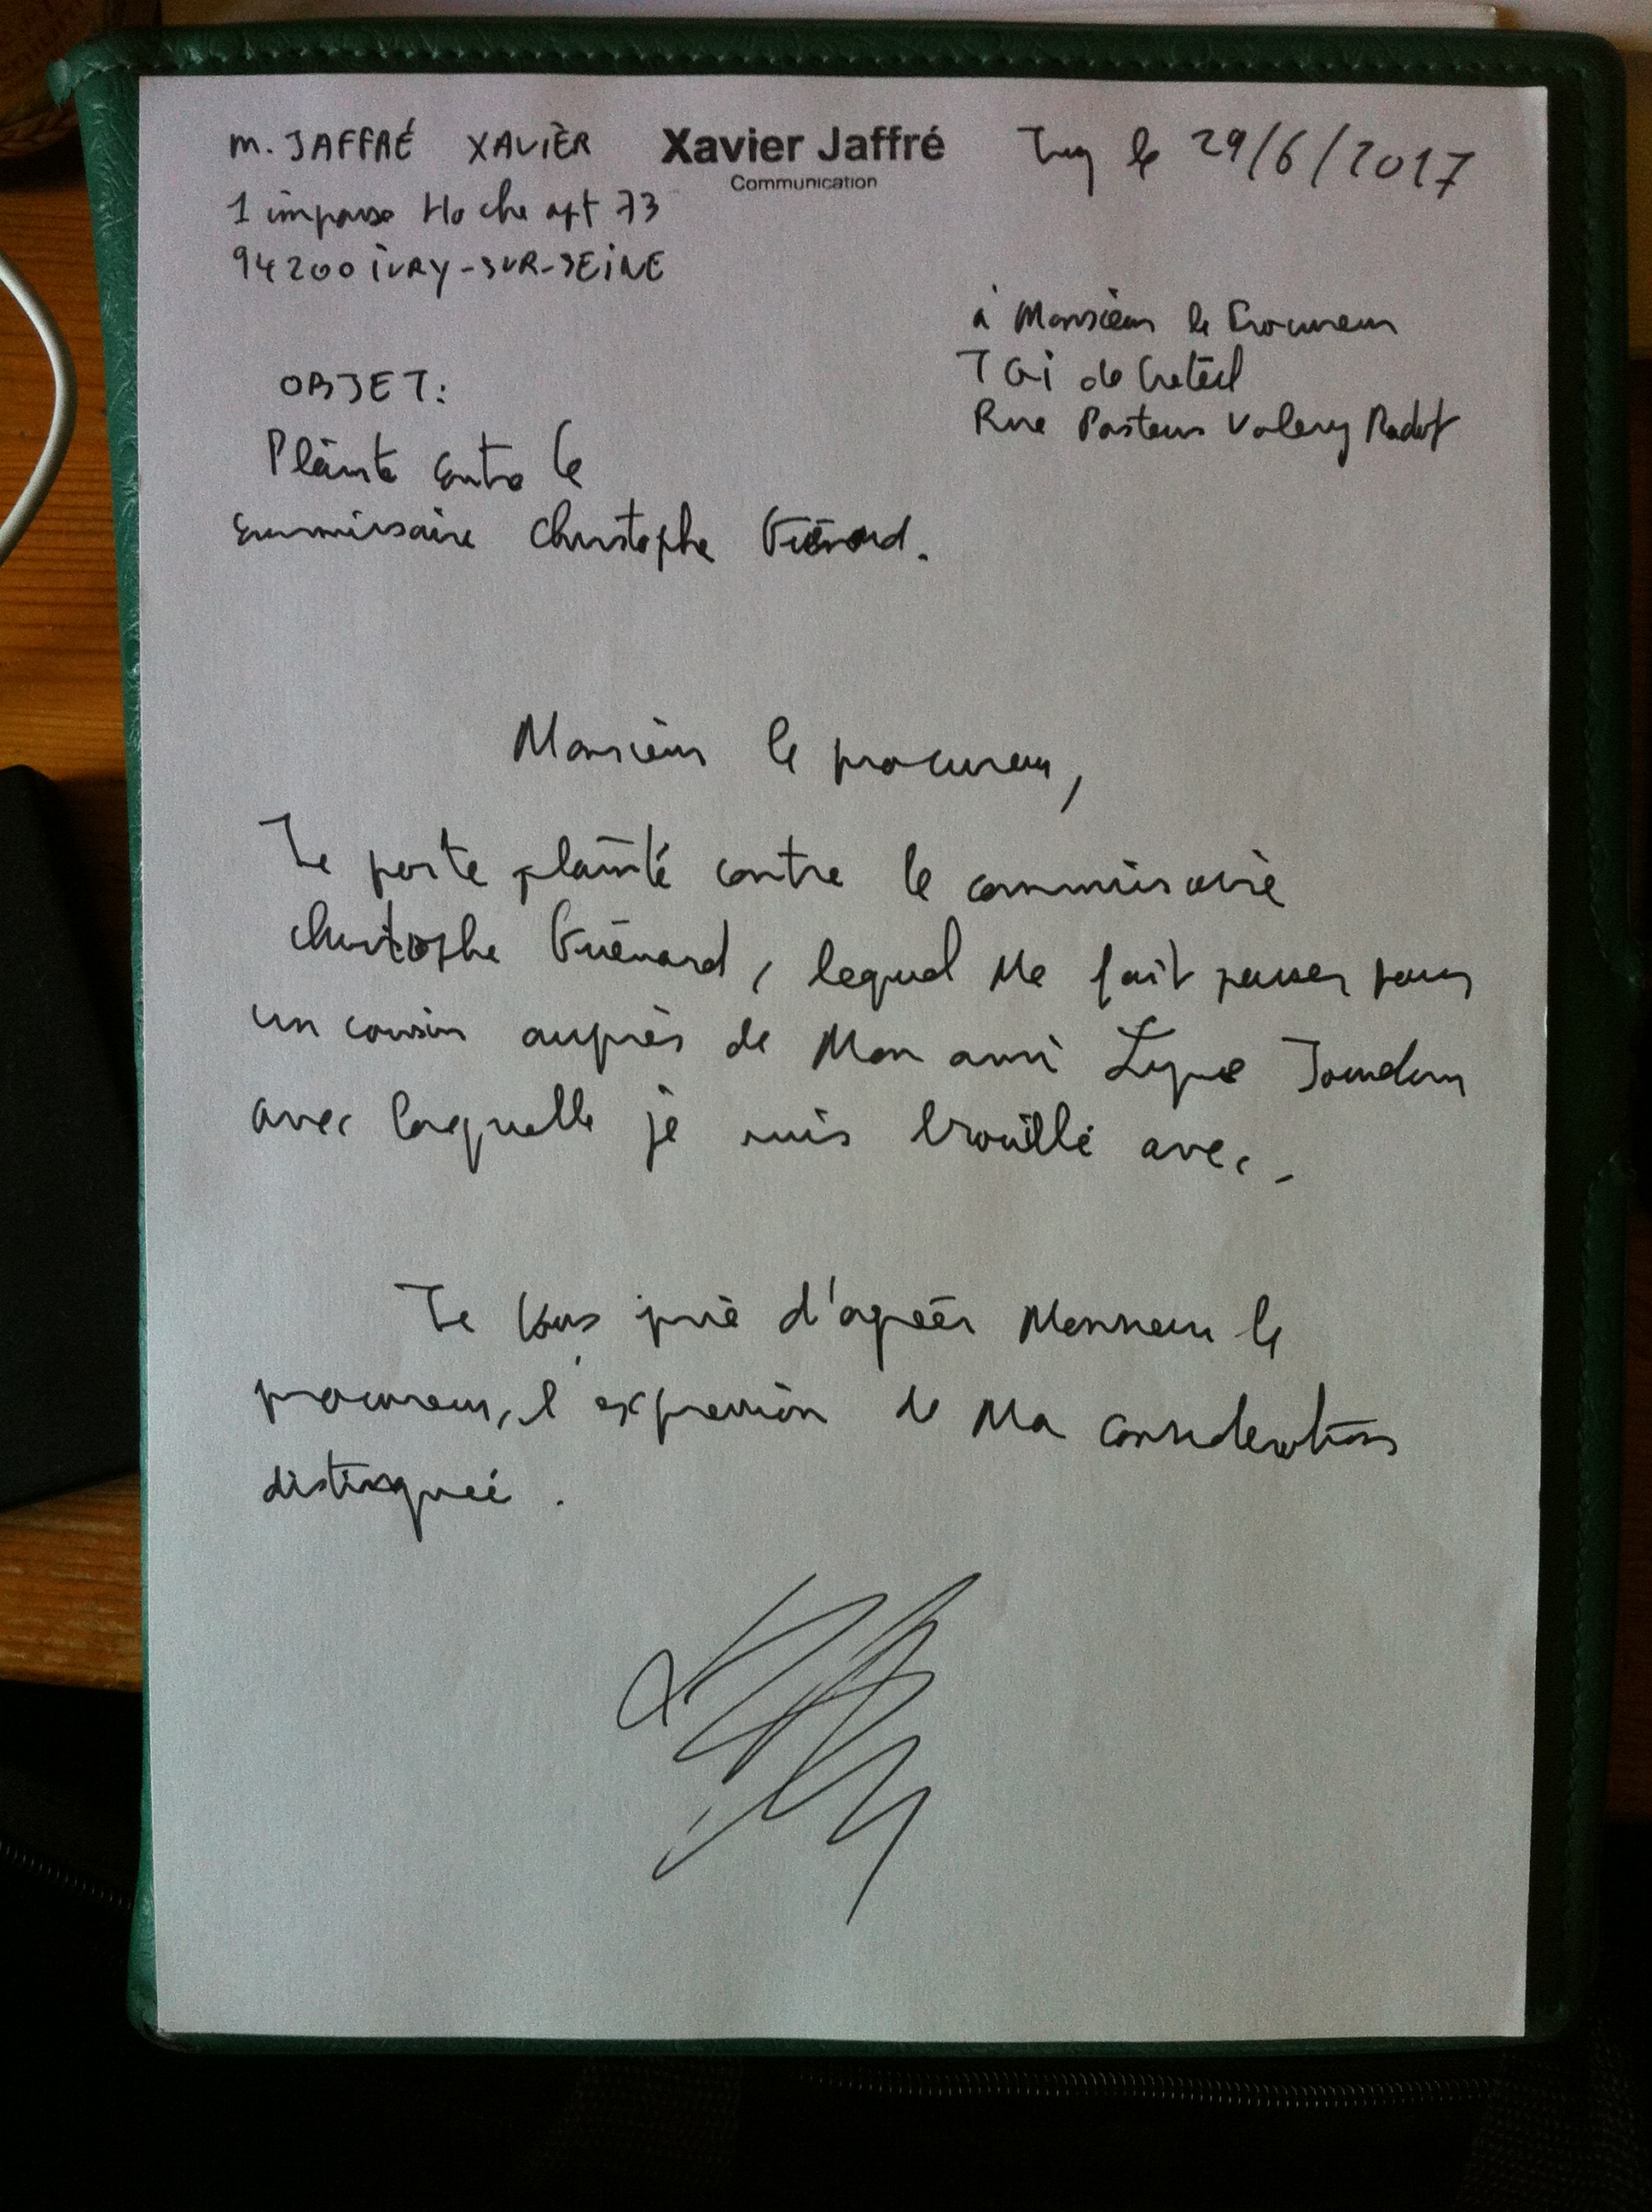 M. JAFFRÉ XAVIER
Xavier Jaffré
Communication
Ivry le 29/6/2017
1 impasse Hoche apt 73
94200 IVRY-SUR-SEINE
à Monsieur le Procureur
TGI de Créteil
Rue Pasteur Valery Radot
OBJET:
Plainte contre le
commissaire Christophe Guénard.
Monsieur le procureur,
Je porte plainte contre le commissaire
Christophe Guénard, lequel me fait passer pour
un cousin auprès de mon ami Lyne
avec laquelle je suis brouillé avec.
Je vous prie d'agréer Monsieur le
procureur, l'expression de ma considération
distinguée.